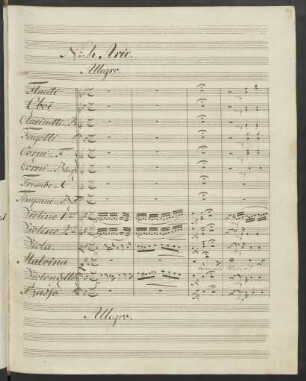 No. 4. Arie.
Allegro
Flauti
Oboi
Clarinetti in B
Fagotti
Corni in F
Corni in B
Trombe in C
Timpani in
Violino 1mo
Violino 2do
Viola
Malvina
Violoncello
Basso
Allegro.